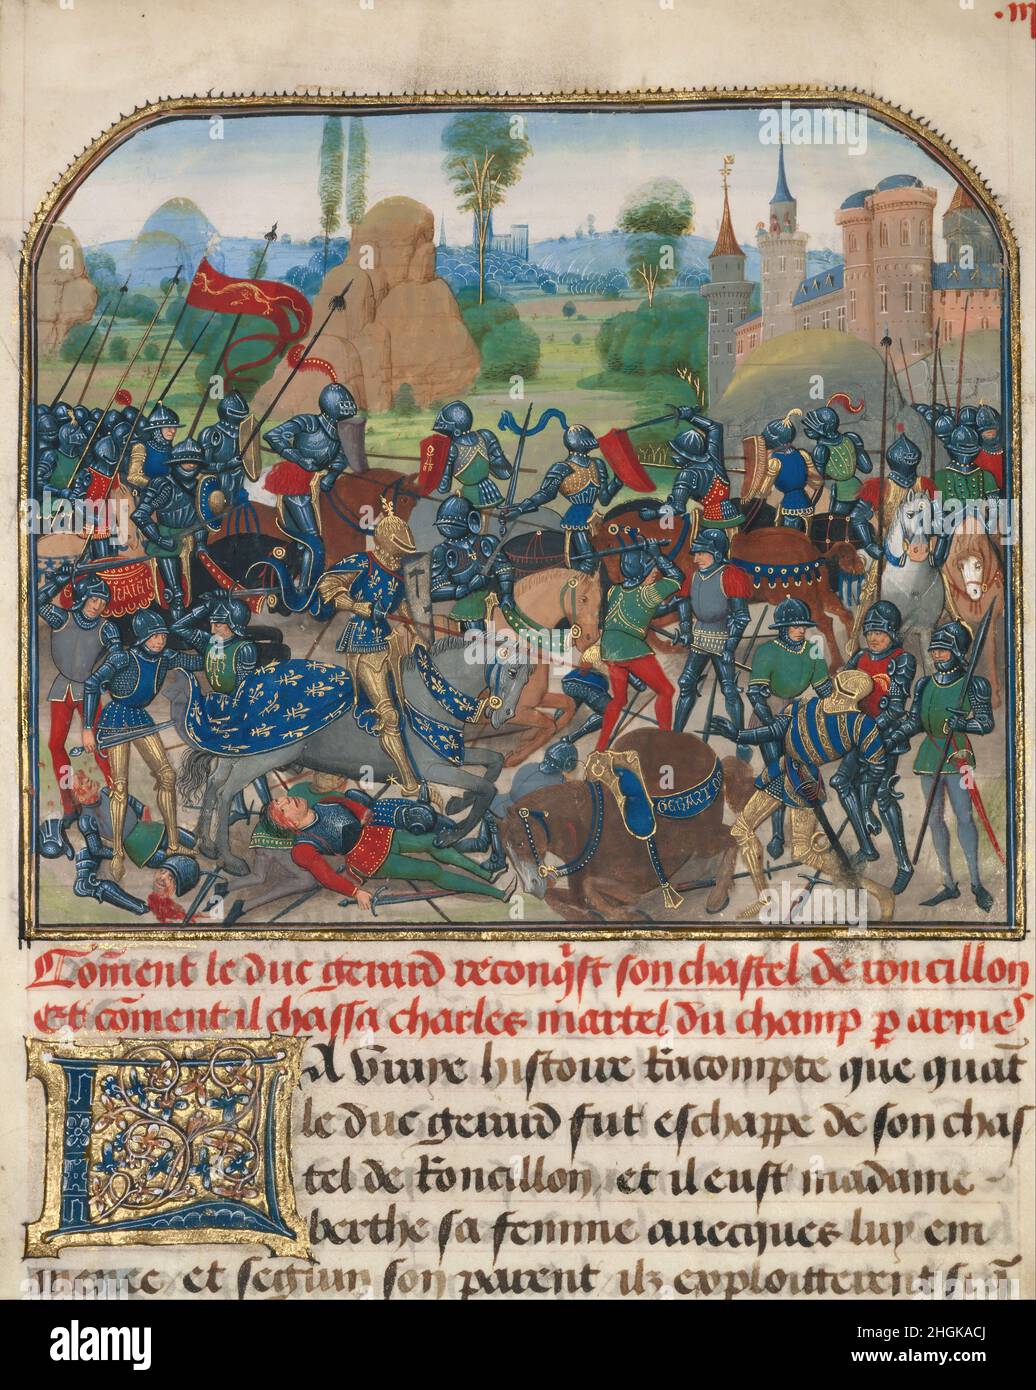 .m
GERART
Comēnt le duc gerard reconq̄st son chastel de roncillon
Et cōment il chassa charles martel du champ p armes
LA vraye histoire racompte que quāt
le duc gerard fut eschappe de son chas
tel de Roncillon, et il eust madame
berthe sa femme auecques luy em
menee et seguin son parent ilz exploitterent
alamy
Image ID: 2HGKACJ
www.alamy.com